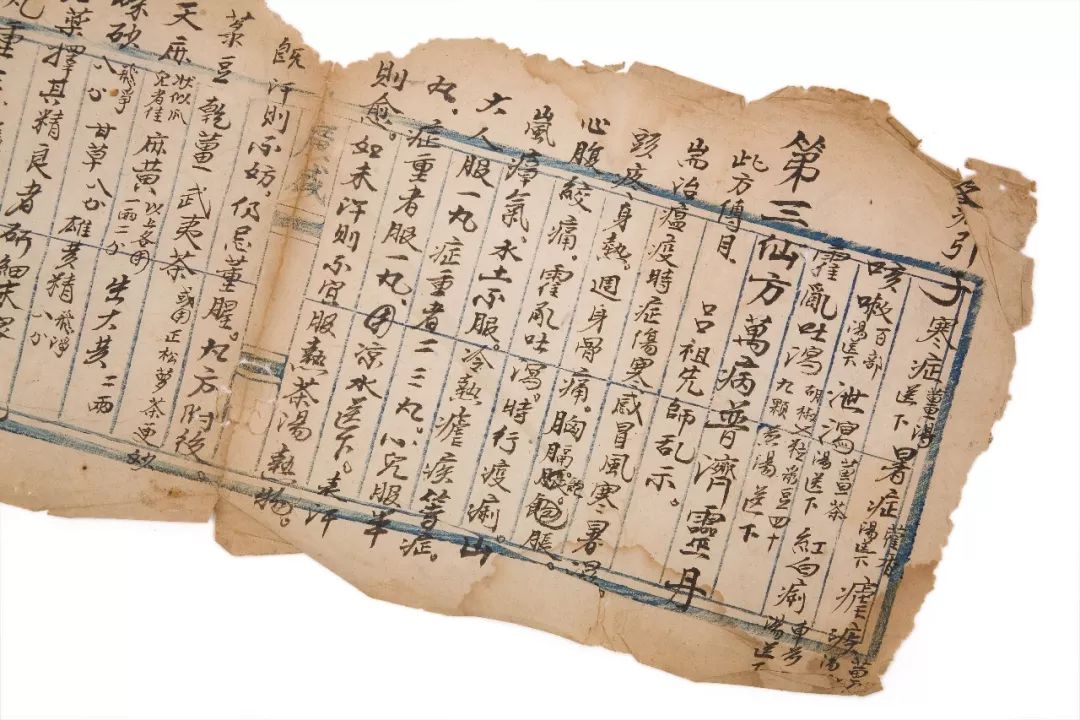 引子
寒症薑湯送下暑症藿香湯送下瘧疾薑湯
咳嗽百部湯送下泄瀉薑茶湯送下紅白痢車前湯送下
霍亂吐瀉胡椒九顆綠豆四十煎湯送下
第三仙方萬病普濟靈丹
此方傳自 呂祖先師乩示。
耑治瘟疫時症傷寒感冒風寒暑濕
頭疼身熱。週身骨痛。胸膈飽脹。
心腹絞痛。霍乱吐瀉。時行疫痢。山
嵐瘴氣、水土不服。冷熱瘧疾等症。
大人服一丸症重者二三丸。小兒服半
丸、症重者服一丸、用凉水送下。表汗
則愈。如未汗則不宜服熱茶湯熱物。
既汗則不妨。仍忌葷腥。丸方附後。
菉豆 乾薑 武夷茶或用正松蘿茶更妙
天麻狀似瓜兒者佳 麻黃以上各用一兩二分 生大黃二兩
砂八分飛淨 甘草八分 雄黃精八分飛淨
藥擇其精良者研細末